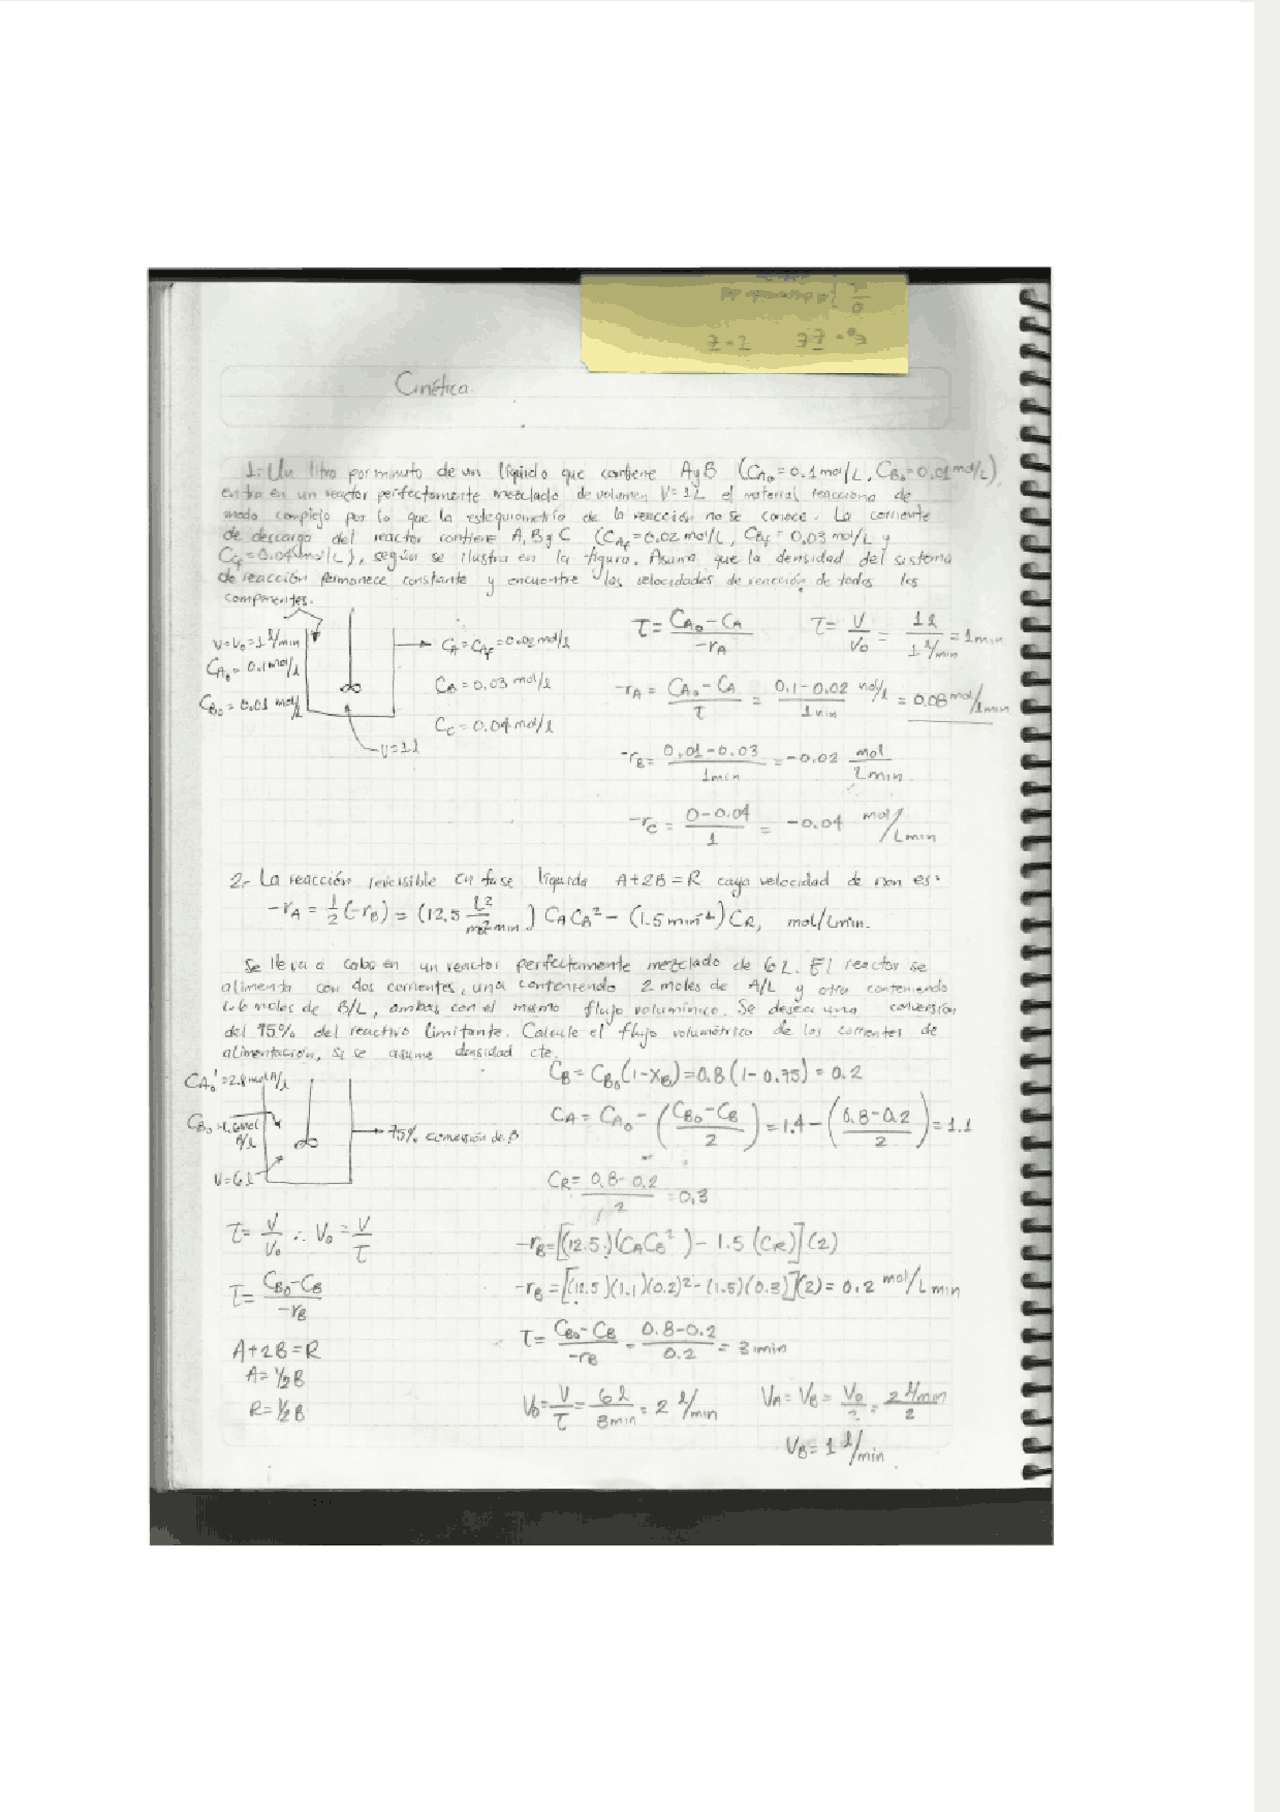 Cinética
1.- Un litro por minuto de un líquido que contiene A y B (CA₀ = 0.1 mol/L, CB₀ = 0.01 mol/L),
entra en un reactor perfectamente mezclado de volumen V = 1L el material reacciona de
modo complejo por lo que la estequiometría de la reacción no se conoce. La corriente
de descarga del reactor contiene A, B y C (CAf = 0.02 mol/L, CBf = 0.03 mol/L y
CCf = 0.04 mol/L), según se ilustra en la figura. Asuma que la densidad del sistema
de reacción permanece constante y encuentre las velocidades de reacción de todos los
componentes.
V = V₀ = 1 l/min
CA₀ = 0.1 mol/l
CB₀ = 0.01 mol/l
CA = CAf = 0.02 mol/l
CB = 0.03 mol/l
CC = 0.04 mol/l
V = 1 l
τ = (CA₀ - CA)/(-rA)   τ = V/V₀ = 1 l/(1 l/min) = 1 min
-rA = (CA₀ - CA)/τ = (0.1 - 0.02)/(1 min) mol/l = 0.08 mol/l min
-rB = (0.01 - 0.03)/(1 min) = -0.02 mol/L min
-rC = (0 - 0.04)/1 = -0.04 mol/L min
2.- La reacción reversible en fase líquida A + 2B = R cuya velocidad de rxn es:
-rA = 1/2 (-rB) = (12.5 L²/mol² min) CA CB² - (1.5 min⁻¹) CR, mol/L min.
Se lleva a cabo en un reactor perfectamente mezclado de 6 L. El reactor se
alimenta con dos corrientes, una conteniendo 2 moles de A/L y otra conteniendo
1.6 moles de B/L, ambas con el mismo flujo volumínico. Se desea una conversión
del 75% del reactivo limitante. Calcule el flujo volumétrico de las corrientes de
alimentación, si se asume densidad cte.
CA₀' = 2.8 mol A/l
CB₀ = 1.6 mol B/l
V = 6 l
75% conversión de B
CB = CB₀(1 - XB) = 0.8(1 - 0.75) = 0.2
CA = CA₀ - ((CB₀ - CB)/2) = 1.4 - ((0.8 - 0.2)/2) = 1.1
CR = (0.8 - 0.2)/2 = 0.3
τ = V/V₀ ∴ V₀ = V/τ
τ = (CB₀ - CB)/(-rB)
A + 2B = R
A = 1/2 B
R = 1/2 B
-rB = [(12.5)(CA CB²) - 1.5 (CR)](2)
-rB = [(12.5)(1.1)(0.2)² - (1.5)(0.3)](2) = 0.2 mol/L min
τ = (CB₀ - CB)/(-rB) = (0.8 - 0.2)/0.2 = 3 min
V₀ = V/τ = 6 l/3 min = 2 l/min
VA = VB = V₀/2 = (2 l/min)/2
VB = 1 l/min